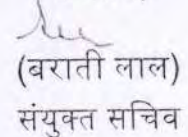 (बराती लाल)
संयुक्त सचिव